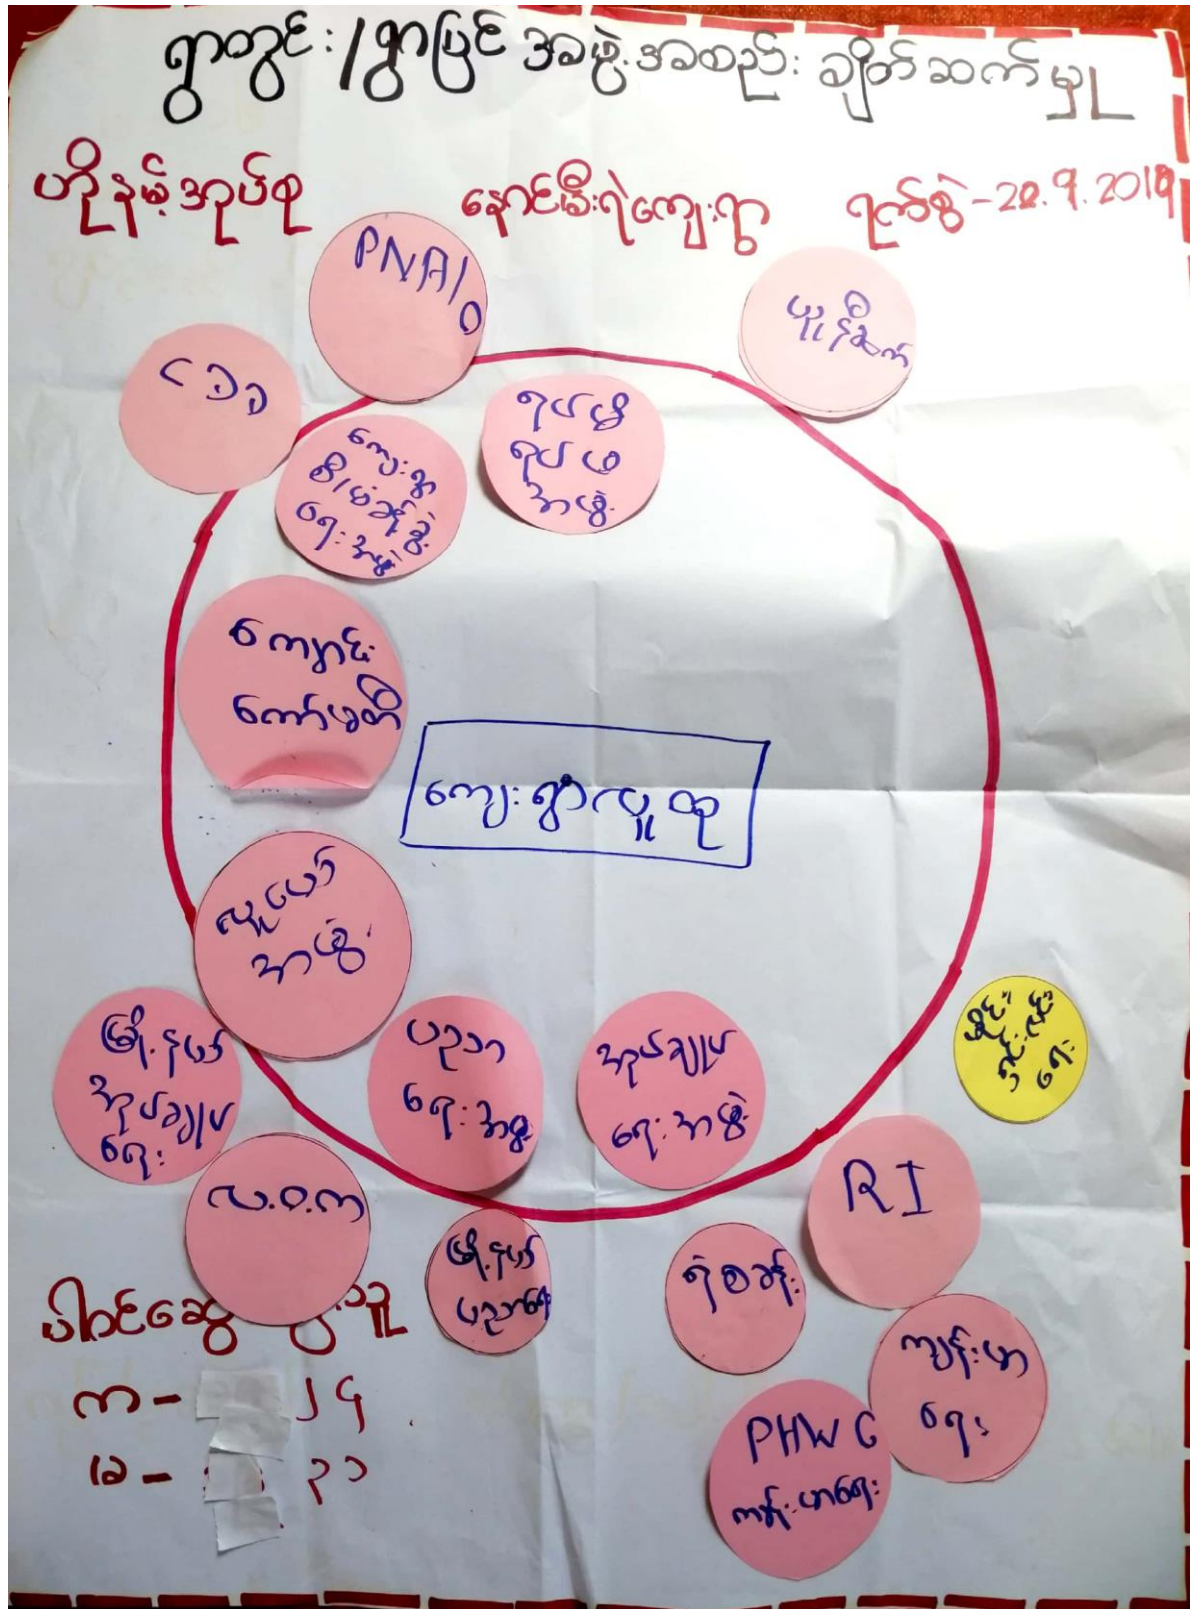 ရွာတွင်း/ရွာပြင် အဖွဲ့အစည်း ချိတ်ဆက်မှု
ဟိုနမ့်အုပ်စု နောင်မီးရဲကျေးရွာ ရက်စွဲ - 22.9.2019
PNA/
ယူနီဆက်
ရပ်မိ
ရပ်ဖ
အဖွဲ့
ကျေးရွာ
စီမံခန့်ခွဲ
ရေးအဖွဲ့
ကျောင်း
ကော်မတီ
ကျေးရွာလူထု
လူငယ်
အဖွဲ့
မြို့နယ်
အုပ်ချုပ်
ရေး
ပညာ
ရေးအဖွဲ့
အုပ်ချုပ်
ရေးအဖွဲ့
RI
လ.ဝ.က
မြို့နယ်
ပညာရေး
ရဲစခန်း
ကျန်းမာ
ရေး
PHWG
ကျန်းမာရေး
ပါဝင်ဆွေ သူ
က - ၂၄
ခ - ၃၁